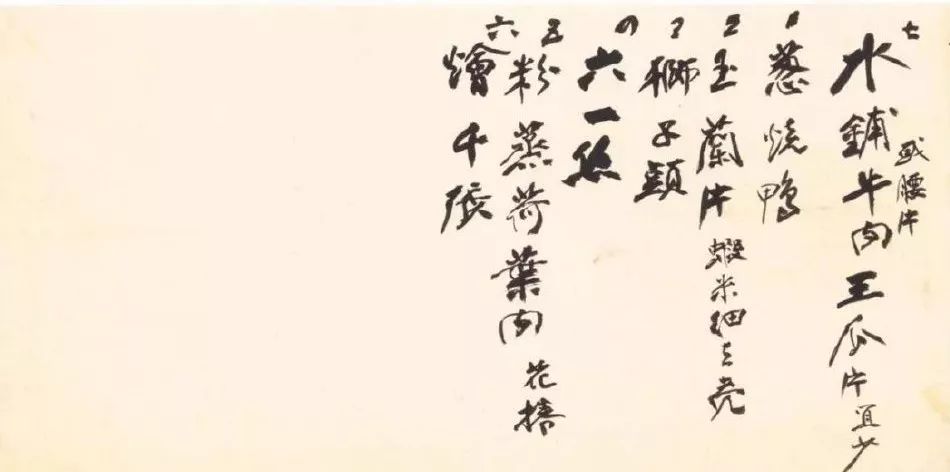 七
水鋪牛肉王瓜片宜少
或腰片
一
葱燒鴨
二
玉蘭片蝦米細去殼
三
獅子頭
四
六一絲
五
粉蒸荷葉肉 花
六
燴千張